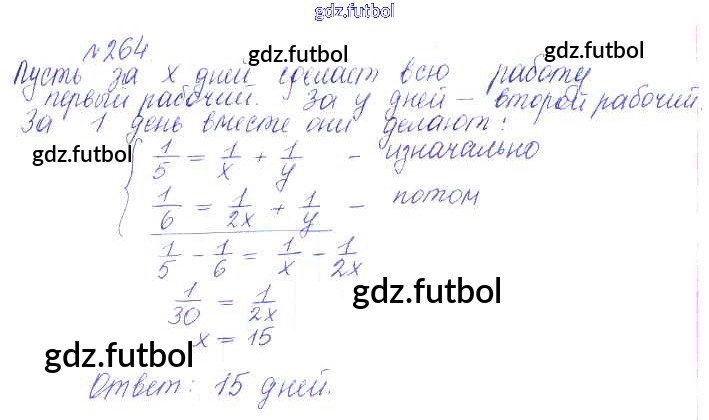 gdz.futbol
№264
gdz.futbol gdz.futbol
Пусть за x дней сделает всю работу
первый рабочий. За y дней – второй рабочий.
За 1 день вместе они делают:
gdz.futbol
1/5 = 1/x + 1/y – изначально
1/6 = 1/2x + 1/y – потом
1/5 - 1/6 = 1/x - 1/2x
1/30 = 1/2x
gdz.futbol
x = 15
gdz.futbol
Ответ: 15 дней.